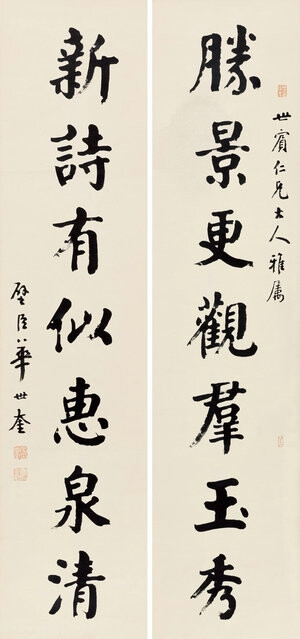 世賓仁兄大人雅屬
勝景更觀羣玉秀
新詩有似惠泉清
璧臣華世奎